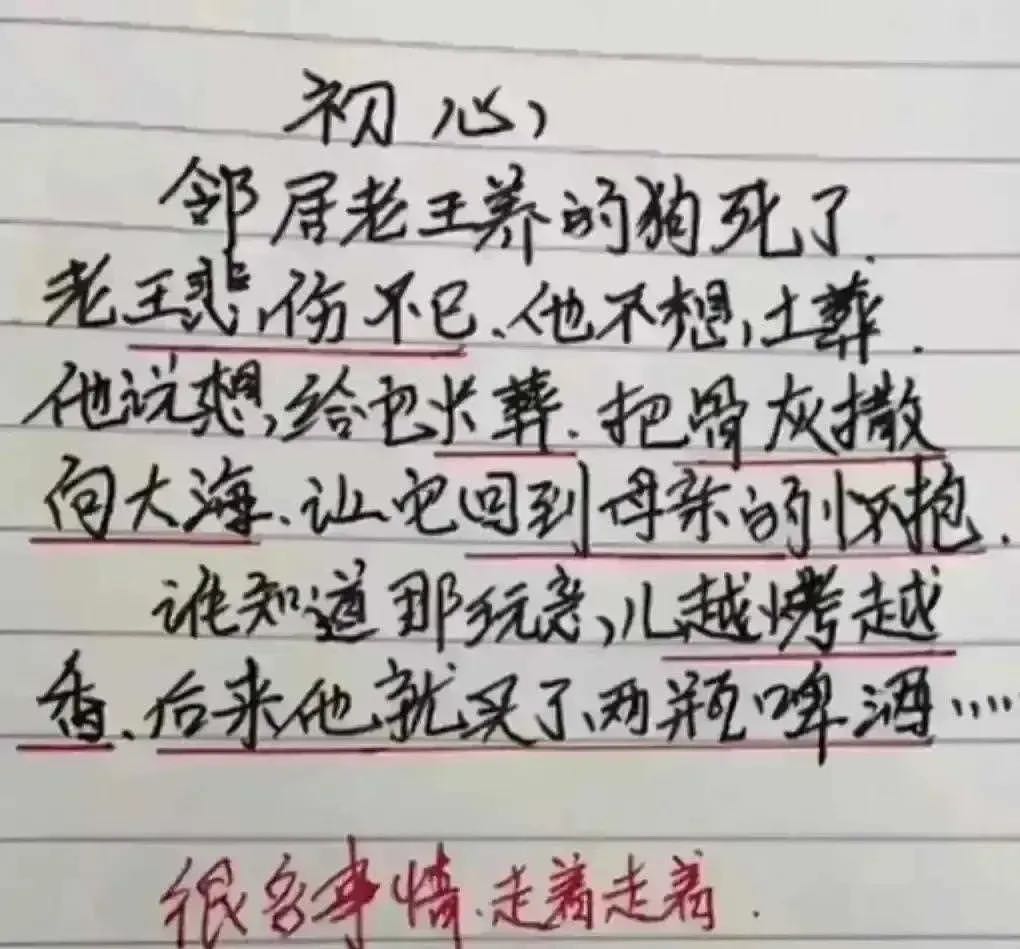 初心
邻居老王养的狗死了.
老王悲伤不已、他不想土葬.
他说想给它火葬.把骨灰撒
向大海、让它回到母亲的怀抱.
谁知道那玩意儿越烤越
香、后来他就买了两瓶啤酒……
很多事情、走着走着.